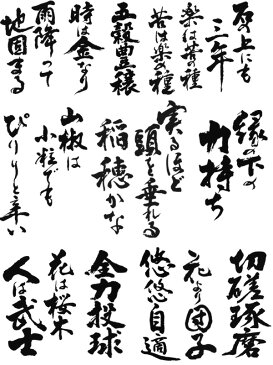 石の上にも
三年
楽は苦の種
苦は楽の種
五穀豊穣
時は金なり
雨降って
地固まる
縁の下の
力持ち
実るほど
頭を垂れる
稲穂かな
山椒は
小粒でも
ぴりりと辛い
切磋琢磨
花より
団子
悠悠自適
全力投球
花は桜木
人は武士